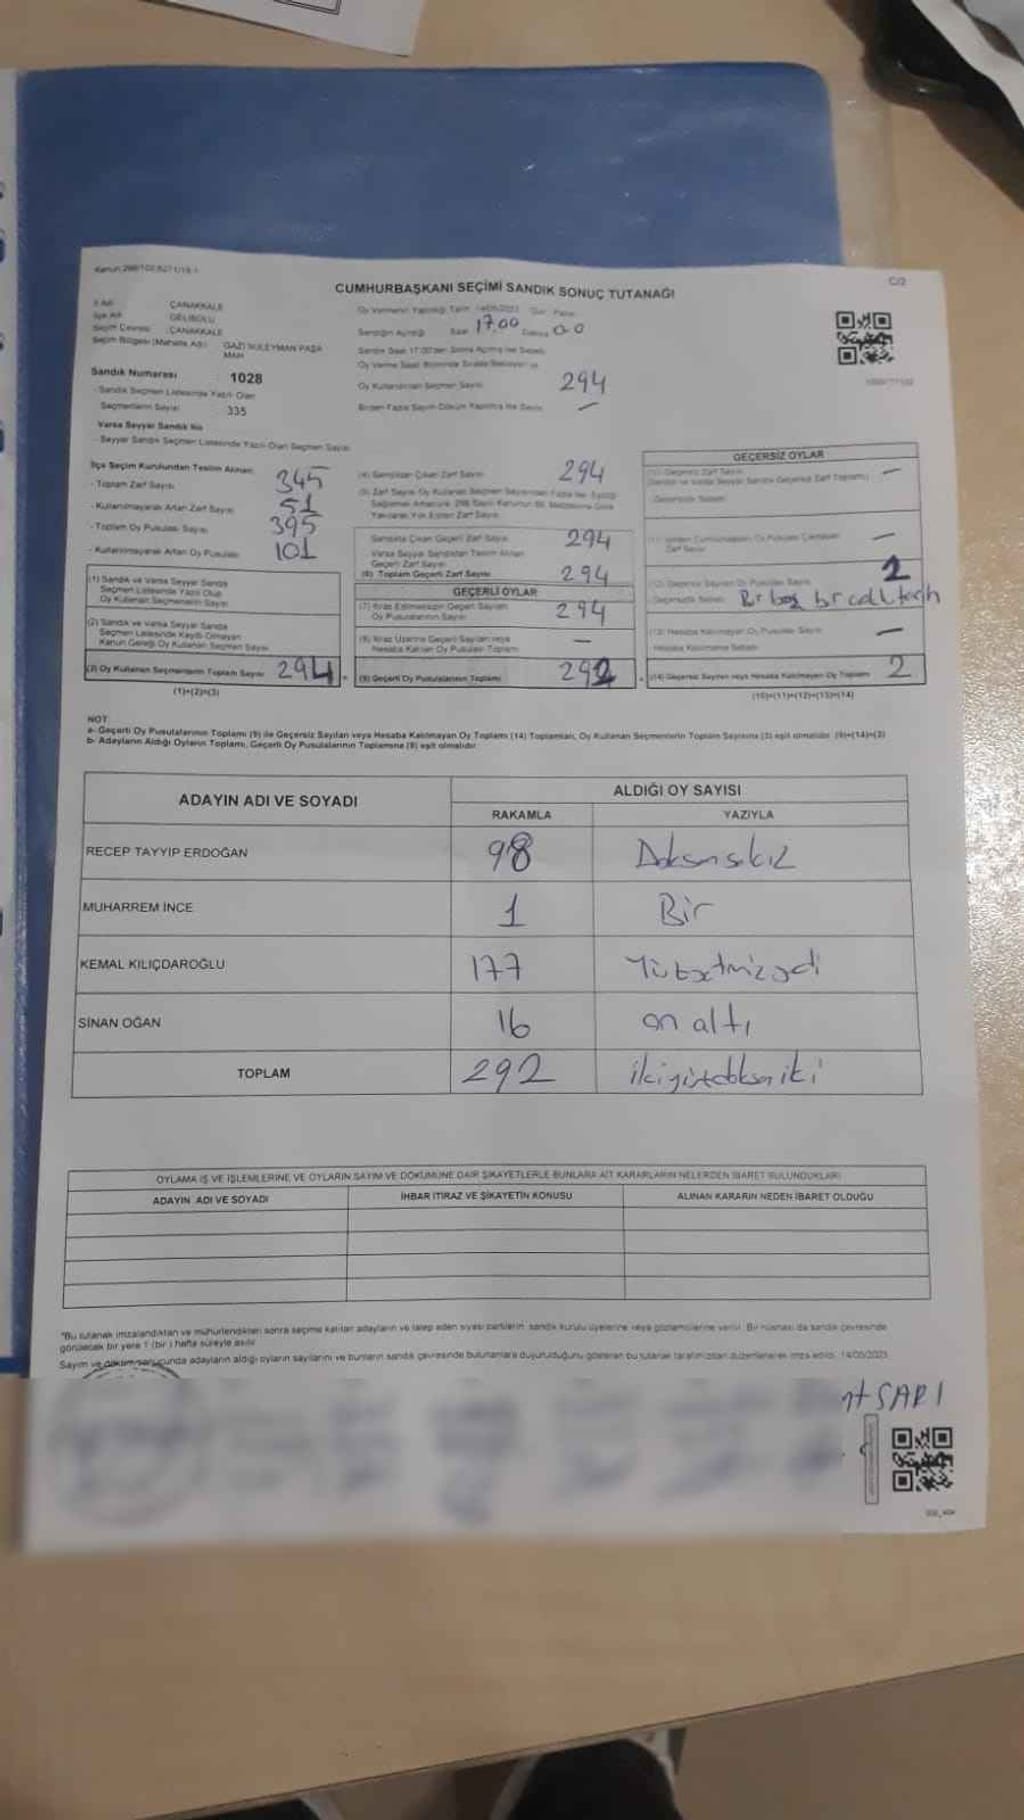 C/2
CUMHURBAŞKANI SEÇİMİ SANDIK SONUÇ TUTANAĞI
İl Adı ÇANAKKALE
İlçe Adı GELİBOLU
Seçim Çevresi ÇANAKKALE
Seçim Bölgesi (Mahalle Adı) GAZİ SÜLEYMAN PAŞA MAH
Sandık Numarası : 1028
- Sandık Seçmen Listesinde Yazılı Olan
Seçmenlerin Sayısı : 335
Varsa Seyyar Sandık No
- Seyyar Sandık Seçmen Listesinde Yazılı Olan Seçmen Sayısı
Sandığın Açıldığı Saat 17.00 Dakika 00
Oy Kullanılan Seçmen Sayısı 294
Birden Fazla Sayım Döküm Yapılmış İse Sayısı —
İlçe Seçim Kurulundan Teslim Alınan
- Toplam Zarf Sayısı 345
- Kullanılmayarak Artan Zarf Sayısı 51
- Toplam Oy Pusulası Sayısı 395
- Kullanılmayarak Artan Oy Pusulası 101
(1) Sandık ve Varsa Seyyar Sandık
Seçmen Listesinde Yazılı Olup
Oy Kullanan Seçmenlerin Sayısı
(2) Sandık ve Varsa Seyyar Sandık
Seçmen Listesinde Kayıtlı Olmayan
Kanun Gereği Oy Kullanan Seçmen Sayısı
(3) Oy Kullanan Seçmenlerin Toplam Sayısı 294
(1)+(2)=(3)
(4) Sandıktan Çıkan Zarf Sayısı 294
Sandıkta Çıkan Geçerli Zarf Sayısı 294
Varsa Seyyar Sandıktan Teslim Alınan
Geçerli Zarf Sayısı
(6) Toplam Geçerli Zarf Sayısı 294
GEÇERLİ OYLAR
(7) İtiraz Edilmeksizin Geçerli Sayılan
Oy Pusulalarının Sayısı 294
(8) İtiraz Üzerine Geçerli Sayılan veya
Hesaba Katılan Oy Pusulası Toplamı —
(9) Geçerli Oy Pusulalarının Toplamı 292
GEÇERSİZ OYLAR
—
—
2
Bir boş bir
(13) Hesaba Katılmayan Oy Pusulası Sayısı —
Hesaba Katılmama Sebebi
(14) Geçersiz Sayılan veya Hesaba Katılmayan Oy Toplamı 2
(10)+(11)+(12)+(13)=(14)
NOT
a- Geçerli Oy Pusulalarının Toplamı (9) ile Geçersiz Sayılan veya Hesaba Katılmayan Oy Toplamı (14) Toplamları, Oy Kullanan Seçmenlerin Toplam Sayısına (3) eşit olmalıdır. (9)+(14)=(3)
b- Adayların Aldığı Oyların Toplamı, Geçerli Oy Pusulalarının Toplamına (9) eşit olmalıdır.
ADAYIN ADI VE SOYADI
ALDIĞI OY SAYISI
RAKAMLA YAZIYLA
RECEP TAYYIP ERDOĞAN 98 Doksansekiz
MUHARREM İNCE 1 Bir
KEMAL KILIÇDAROĞLU 177 Yüzyetmişyedi
SİNAN OĞAN 16 on altı
TOPLAM 292 ikiyüzdoksaniki
OYLAMA İŞ VE İŞLEMLERİNE VE OYLARIN SAYIM VE DÖKÜMÜNE DAİR ŞİKAYETLERLE BUNLARA AİT KARARLARIN NELERDEN İBARET BULUNDUKLARI
ADAYIN ADI VE SOYADI İHBAR İTİRAZ VE ŞİKAYETİN KONUSU ALINAN KARARIN NEDEN İBARET OLDUĞU
*Bu tutanak imzalandıktan ve mühürlendikten sonra seçime katılan adayların ve talep eden siyasi partilerin sandık kurulu üyelerine veya gözlemcilerine verilir. Bir nüshası da sandık çevresinde
görülecek bir yere 1 (bir) hafta süreyle asılır.
Sayım ve döküm sonucunda adayların aldığı oyların sayılarını ve bunların sandık çevresinde bulunanlara duyurulduğunu gösteren bu tutanak tarafımızdan düzenlenerek imza edildi. 14/05/2023
SARI